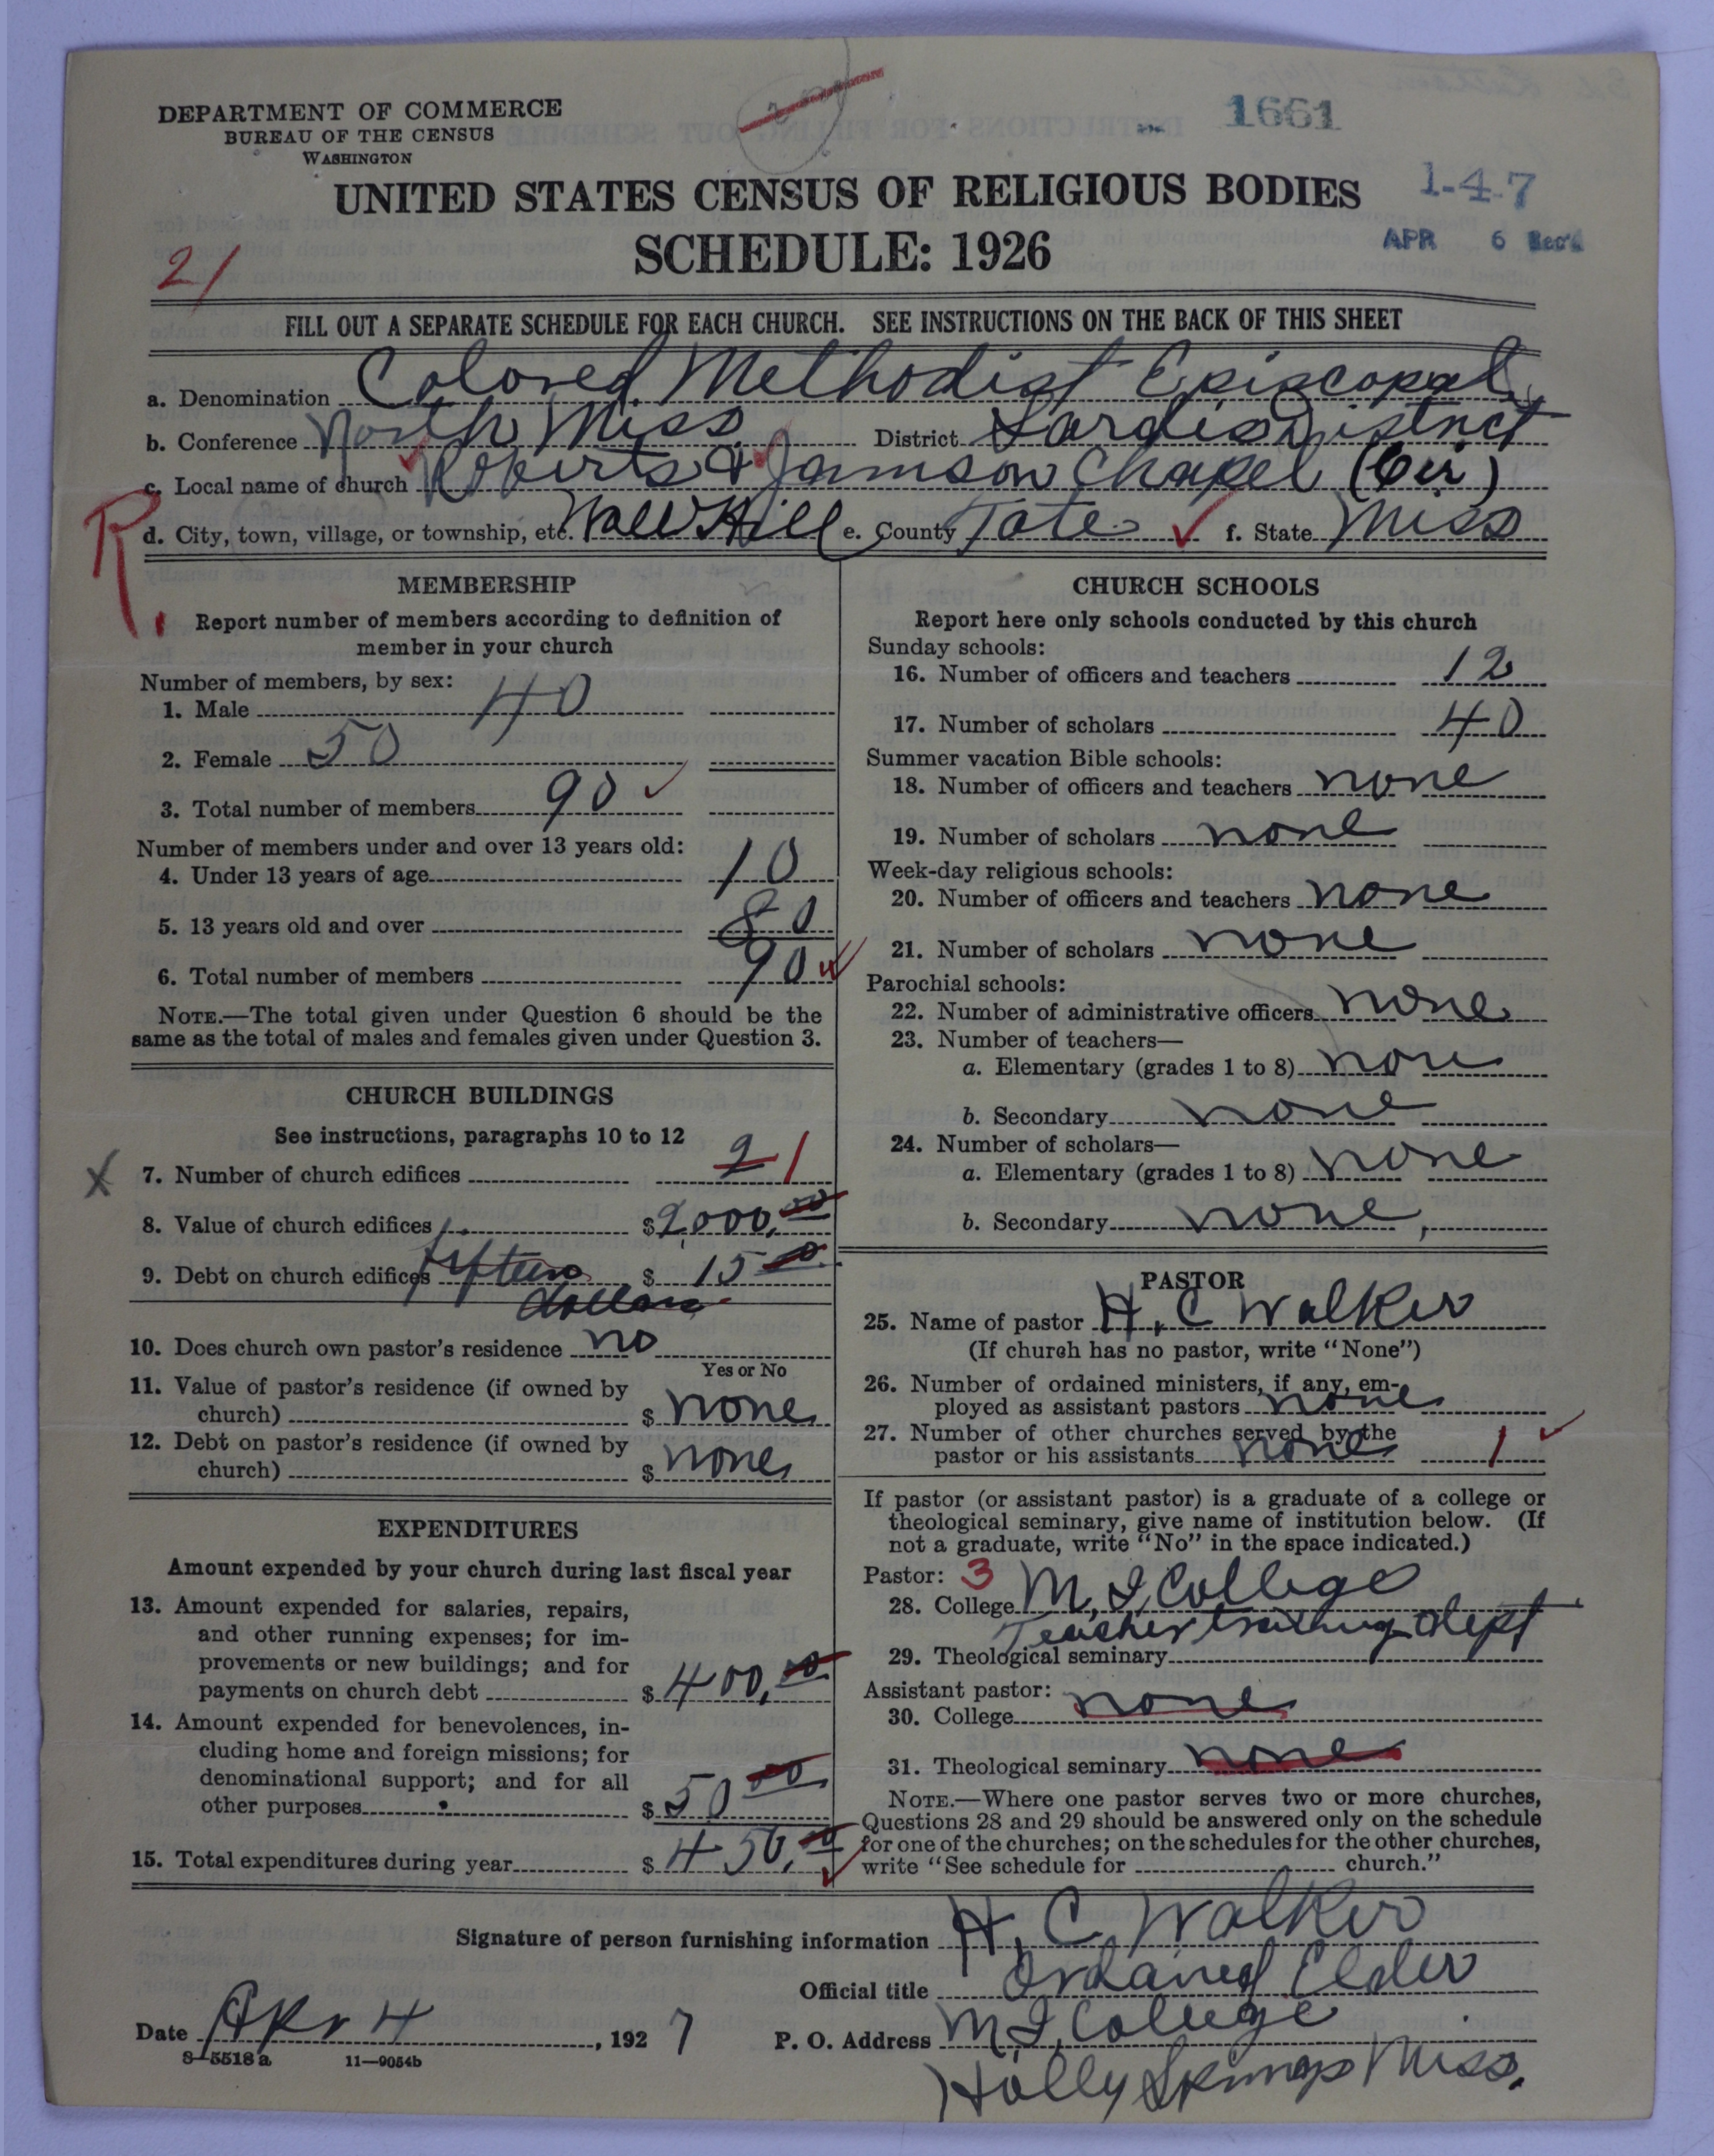 1661
DEPARTMENT OF COMMERCE
BUREAU OF THE CENSUS
WASHINGTON
UNITED STATES CENSUS OF RELIGIOUS BODIES
1-4-7
SCHEDULE: 1926
APR 6 Rec'd
21
FILL OUT A SEPARATE SCHEDULE FOR EACH CHURCH. SEE INSTRUCTIONS ON THE BACK OF THIS SHEET
a. Denomination Colored Methodist Episcopal
b. Conference North Miss. District Sardis District
c. Local name of church Roberts & Jamison Chapel (Cir)
R.
d. City, town, village, or township, etc. Wall Hill e. County Tate f. State Miss
MEMBERSHIP
Report number of members according to definition of
member in your church
Number of members, by sex:
1. Male 40
2. Female 50
3. Total number of members 90
Number of members under and over 13 years old:
4. Under 13 years of age 10
5. 13 years old and over 80
6. Total number of members 90
NOTE.—The total given under Question 6 should be the
same as the total of males and females given under Question 3.
CHURCH BUILDINGS
See instructions, paragraphs 10 to 12
x 7. Number of church edifices 2 1
8. Value of church edifices $2,000.00
9. Debt on church edifices fifteen $ 15 00
dollars
10. Does church own pastor's residence no
Yes or No
11. Value of pastor's residence (if owned by
church) $ none
12. Debt on pastor's residence (if owned by
church) $ none
EXPENDITURES
Amount expended by your church during last fiscal year
13. Amount expended for salaries, repairs,
and other running expenses; for im-
provements or new buildings; and for
payments on church debt $ 400.00
14. Amount expended for benevolences, in-
cluding home and foreign missions; for
denominational support; and for all
other purposes $ 50 00
15. Total expenditures during year $ 450.00
CHURCH SCHOOLS
Report here only schools conducted by this church
Sunday schools:
16. Number of officers and teachers 12
17. Number of scholars 40
Summer vacation Bible schools:
18. Number of officers and teachers none
19. Number of scholars none
Week-day religious schools:
20. Number of officers and teachers none
21. Number of scholars none
Parochial schools:
22. Number of administrative officers none
23. Number of teachers—
a. Elementary (grades 1 to 8) none
b. Secondary none
24. Number of scholars—
a. Elementary (grades 1 to 8) none
b. Secondary none,
PASTOR
25. Name of pastor H. C Walker
(If church has no pastor, write "None")
26. Number of ordained ministers, if any, em-
ployed as assistant pastors none
27. Number of other churches served by the
pastor or his assistants none 1
If pastor (or assistant pastor) is a graduate of a college or
theological seminary, give name of institution below. (If
not a graduate, write "No" in the space indicated.)
Pastor: 3
28. College M. I. College
Teacher training dept
29. Theological seminary
Assistant pastor:
30. College none
31. Theological seminary none
NOTE.—Where one pastor serves two or more churches,
Questions 28 and 29 should be answered only on the schedule
for one of the churches; on the schedules for the other churches,
write "See schedule for church."
Signature of person furnishing information H. C. Walker
Official title Ordained Elder
Date Apr 4, 1927 P. O. Address M. I. College
8-5518 a 11-9054b
Holly Springs Miss.